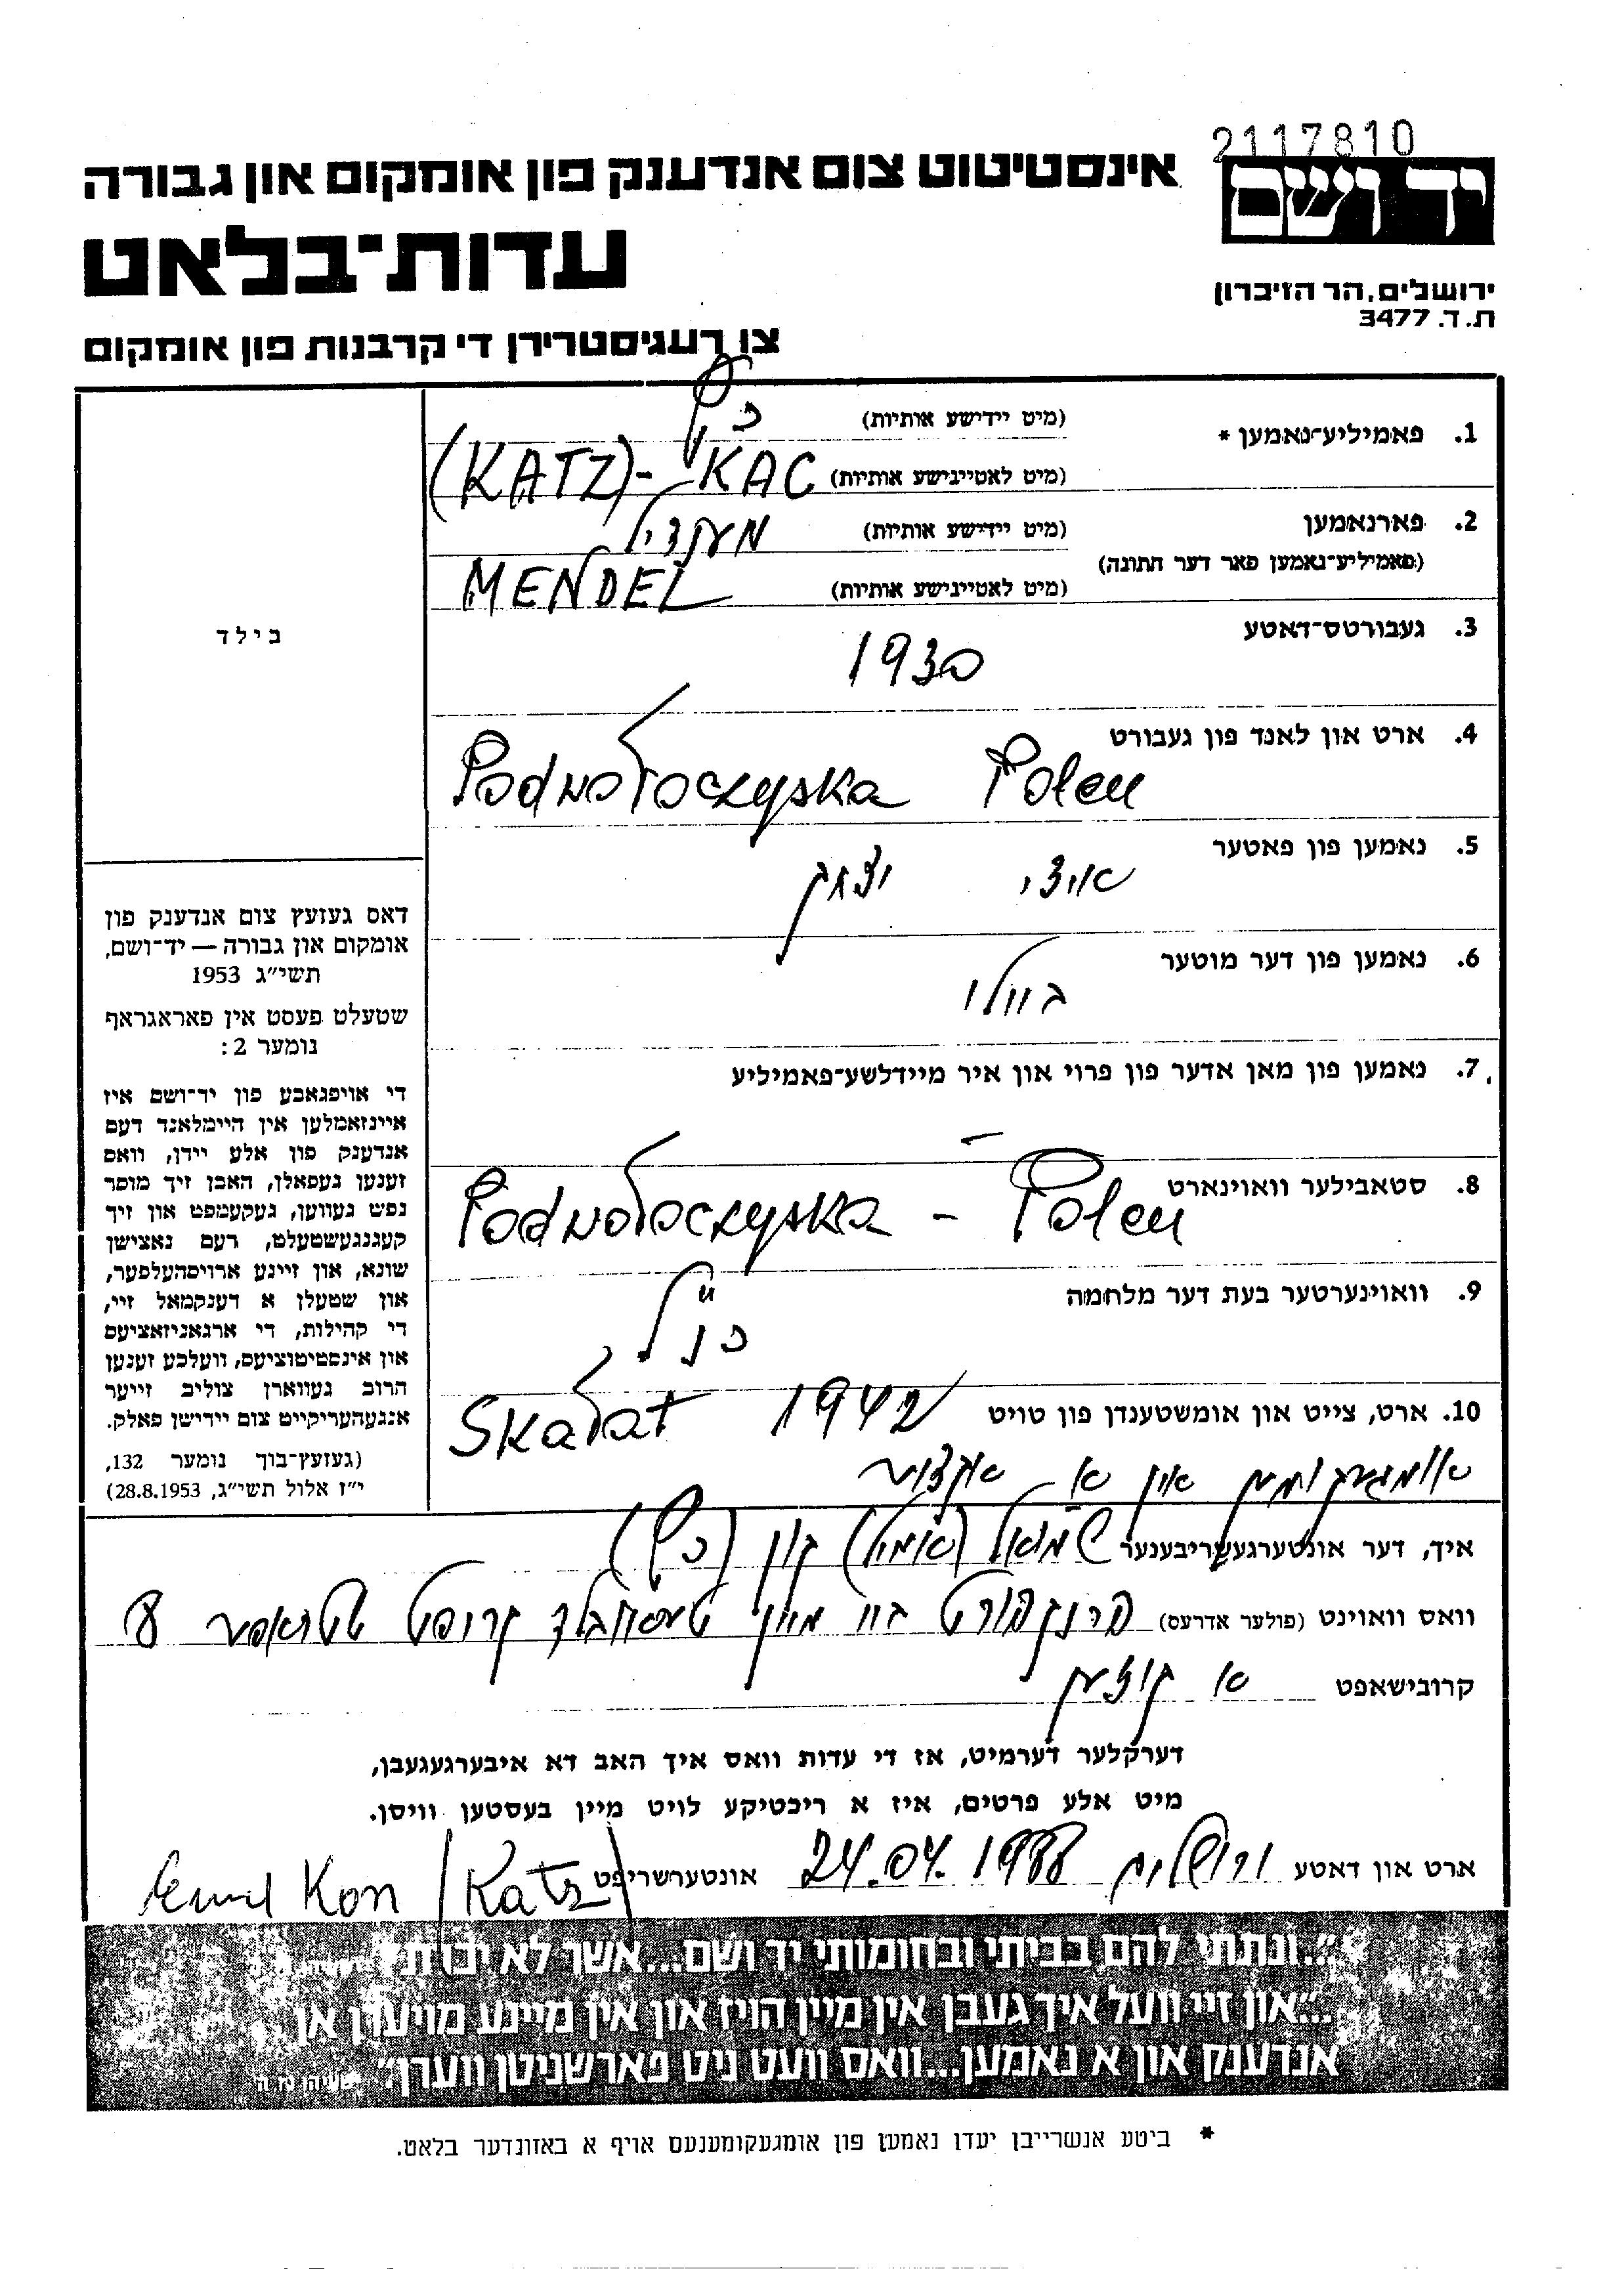 2117810
יד ושם
אינסטיטוט צום אנדענק פון אומקום און גבורה
עדות־בלאט
צו רעגיסטרירן די קרבנות פון אומקום
ירושלים, הר הזיכרון
ת.ד. 3477
1. פאמיליע־נאמען *
(מיט יידישע אותיות) כץ
(מיט לאטיינישע אותיות) KAC -(KATZ)
2. פארנאמען
(פאמיליע־נאמען פאר דער חתונה)
(מיט יידישע אותיות) מענדיל
(מיט לאטיינישע אותיות) MENDEL
3. געבורטס־דאטע
1930
4. ארט און לאנד פון געבורט
Podwołoczyska Polen
5. נאמען פון פאטער
איצי יצחק
6. נאמען פון דער מוטער
7. נאמען פון מאן אדער פון פרוי און איר מיידלשע־פאמיליע
—
8. סטאבילער וואוינארט
Podwołoczyska - Polen
9. וואוינערטער בעת דער מלחמה
כנ"ל
10. ארט, צייט און אומשטענדן פון טויט
Skałat 1942
אומגעקומען אין א אקציע
בילד
דאס געזעץ צום אנדענק פון
אומקום און גבורה — יד־ושם,
תשי״ג 1953
שטעלט פעסט אין פאראגראף
נומער 2:
די אויפגאבע פון יד־ושם איז
איינזאמלען אין היימלאנד דעם
אנדענק פון אלע יידן, וואס
זענען געפאלן, האבן זיך מוסר
נפש געווען, געקעמפט און זיך
קעגנגעשטעלט, דעם נאצישן
שונא, און זיינע ארויסהעלפער,
און שטעלן א דענקמאל זיי,
די קהילות, די ארגאניזאציעס
און אינסטיטוציעס, וועלכע זענען
הרוב געווארן צוליב זייער
אנגעהעריקייט צום יידישן פאלק.
(געזעץ־בוך נומער 132,
י״ז אלול תשי״ג, 28.8.1953)
איך, דער אונטערגעשריבענער שמואל (אמיל) קון (כץ)
וואס וואוינט (פולער אדרעס) פרנקפורט
קרובישאפט א קוזען
דערקלער דערמיט, אז די עדות וואס איך האב דא איבערגעגעבן,
מיט אלע פרטים, איז א ריכטיקע לויט מיין בעסטען וויסן.
ארט און דאטע ירושלים 24.04.1988 אונטערשריפט Emil Kon (Katz)
״..ונתתי להם בביתי ובחומותי יד ושם...אשר לא יכרת״
...״און זיי וועל איך געבן אין מיין הויז און אין מיינע מויערן אן
אנדענק און א נאמען...וואס וועט ניט פארשניטן ווערן״ ישעיהו נו ה
* ביטע אנשרייבן יעדן נאמען פון אומגעקומענעם אויף א באזונדער בלאט.